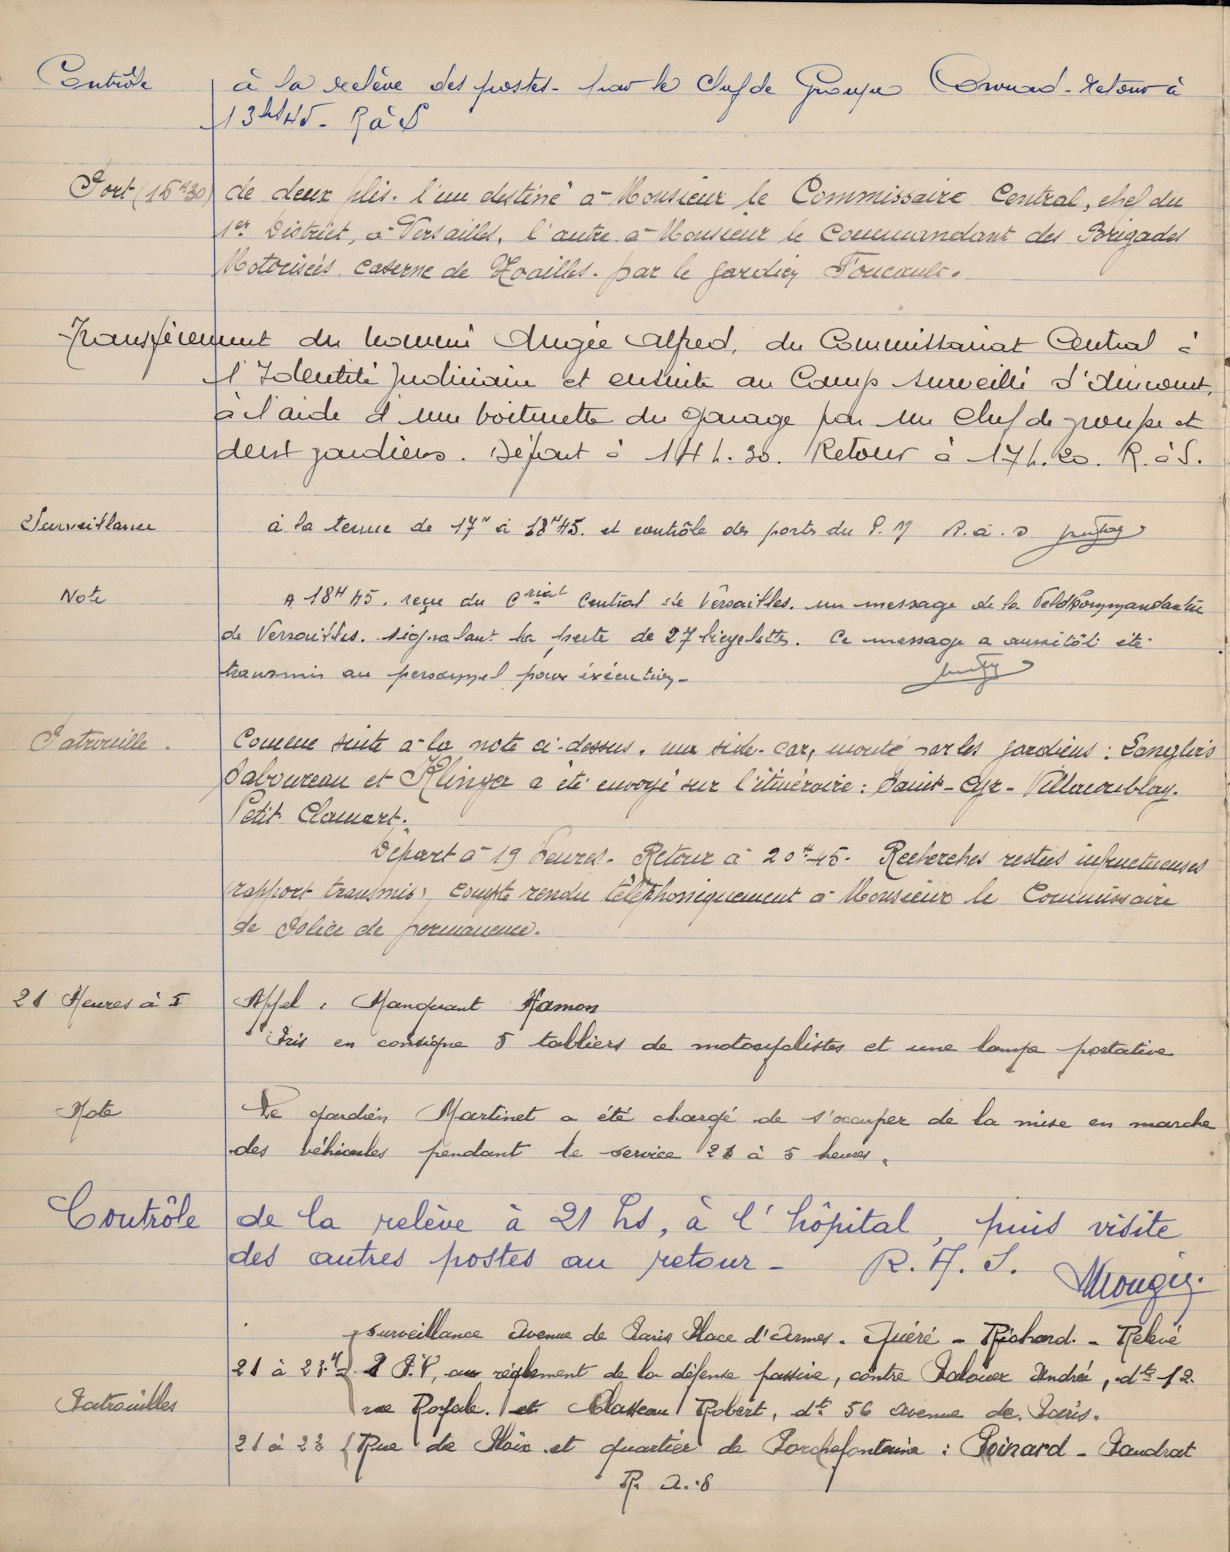 Contrôle à la relève des postes - par le Chef de Groupe - Retour à
13h45 - R à S
Port (16H30) de deux plis. l'un destiné à Monsieur le Commissaire Central, chef du
1er District, à Versailles, l'autre à Monsieur le Commandant des Brigades
Motocisées caserne de Noailles. par le gardien Foucault.
Transfèrement du nommé Angée Alfred, du Commissariat Central à
l'Identité Judiciaire et ensuite au Camp surveillé d'Aincourt,
à l'aide d'une voiturette du garage par un Chef de groupe et
deux gardiens. Départ à 14 h. 30. Retour à 17 h. 20. R. à S.
Surveillance à la tenue de 17H à 18H45. et contrôle des ports du P. M R. à. S
Note A 18H45. reçu du Criat Central de Versailles. un message de la Feldkommandantur
de Versailles. signalant la perte de 27 bicyclettes. Ce message a aussitôt été
transmis au personnel pour exécution -
Patrouille. Comme suite à la note ci-dessus, un side-car, monté par les gardiens : Langlois
Saboureau et Klinger a été envoyé sur l'itinéraire : Saint-Cyr - Villacoublay.
Petit Clamart.
Départ à 19 heures. Retour à 20H45. Recherches restées infructueuses
rapport transmis, compte rendu téléphoniquement à Monsieur le Commissaire
de Police de permanence.
21 Heures à 5 Appel : Manquant Hamon
Pris en consigne 5 tabliers de motocyclistes et une lampe portative
Note Le gardien Martinet a été chargé de s'occuper de la mise en marche
des véhicules pendant le service 21 à 5 heures.
Contrôle de la relève à 21 hs, à l'hôpital, puis visite
des autres postes au retour - R. A. S. Mougin.
Surveillance Avenue de Paris Place d'Armes. Quéré - Richard. - Relevé
21 à 23H 2 P.V, au règlement de la défense passive, contre André, dt 12
Patrouilles rue Royale. et Robert, dt 56 avenue de Paris.
21 à 23 Rue de Noix et quartier de Porchefontaine : Poinard - Paudrat
R. A. S